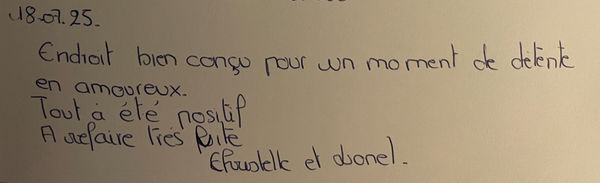 18.07.25.
Endroit bien conçu pour un moment de détente
en amoureux.
Tout à été positif
A refaire très vite
et